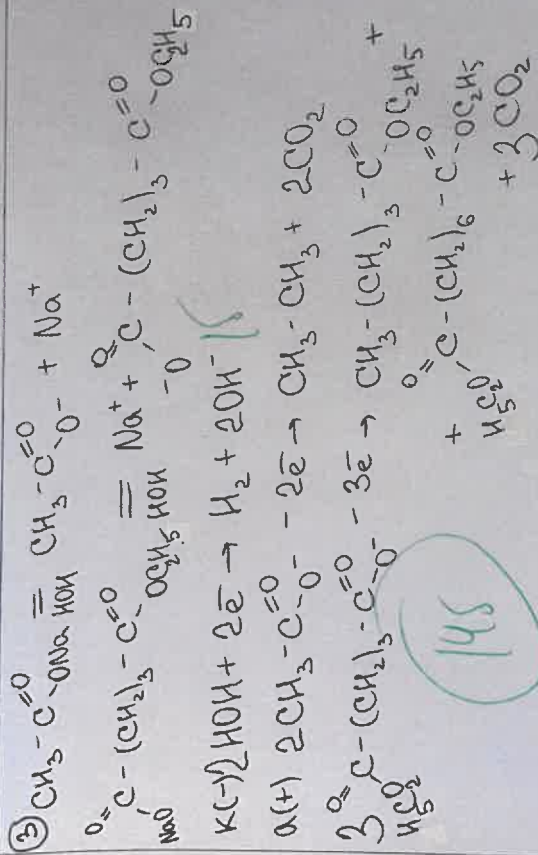 ③ CH₃ - C(=O) - ONa ⇌(HOH) CH₃ - C(=O) - O⁻ + Na⁺
O=C(NaO) - (CH₂)₃ - C(=O) - OC₂H₅ ⇌(HOH) Na⁺ + O=C(⁻O) - (CH₂)₃ - C(=O) - OC₂H₅
K(-) 2HOH + 2ē → H₂ + 2OH⁻
a(+) 2CH₃ - C(=O) - O⁻ - 2ē → CH₃ - CH₃ + 2CO₂
3 O=C(H₅C₂O) - (CH₂)₃ - C(=O) - O⁻ - 3ē → CH₃ - (CH₂)₃ - C(=O) - OC₂H₅ +
+ O=C(H₅C₂O) - (CH₂)₆ - C(=O) - OC₂H₅ + 3CO₂